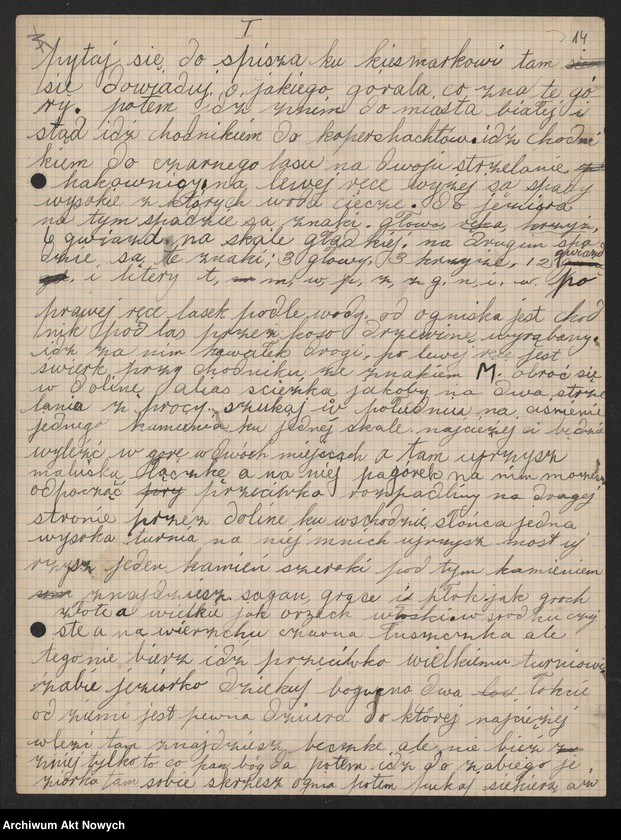 I
14
pytaj się do spisza ku kiesmarkowi tam
się dowiaduj o jakiego górala co zna te gó
ry. potem idz znim do miasta białej i
stąd idz chodnikiem do kopershachtów. idz chodni
kiem do czarnego lasu na dwoju strzelanie
hakownicy, na lewej ręce wyzej są spady
wysokie z których woda ciecze. do jeziora
na tym spadzie są znaki. głowa, ręka, krzyż,
6 gwiazd. na skale gładkiej. na drugim spa
dzie są te znaki; 3 głowy, 3 krzyże, 12 gwiazd
i litery t, m, w, p, z, z, g, n, i, w. po
prawej ręce lasek podle wody. od ogniska jest chod
nik pod las przez koso drzewinę wyrąbany.
idz za nim kawałek drogi, po lewej ręce jest
świerk przy chodniku ze znakiem M. obróć się
w dolinę alias scieżka jakoby na dwa strze
lania z procy. szukaj w południa na
jednego kamienia ku jednej skale. najcięzej ci będzie
wyliźć w górę w dwóch miejscach a tam ujrzysz
maluśką łączkę a na niej pagórek na nim mozesz
odpocząć przeciwka rozpadliny na drugej
stronie przez dolinę ku wschodzie słońca jedna
wysoka turnia na niej mnich ujrzysz most uj
rzysz jeden kamień szeroki pod tym kamieniem
znajdziesz sagan, grace i płok jak groch
złote a wielkie jak orzech włoski w srodku czy
ste a na wierzchu czarna tuszczka ale
tego nie bierz idz przeciwko wielkiemu turniowi
zabie jeziórko dziekuj bogu na dwa łokcie
od ziemi jest pewna dziura do której najcięzej
wlezć tam znajdziesz beczke, ale nie bierz z
niej tylko to co pan bóg da potem idz do zabiego je
ziórka tam sobie skrzesz ognia potem pukaj siekierą a w
Archiwum Akt Nowych